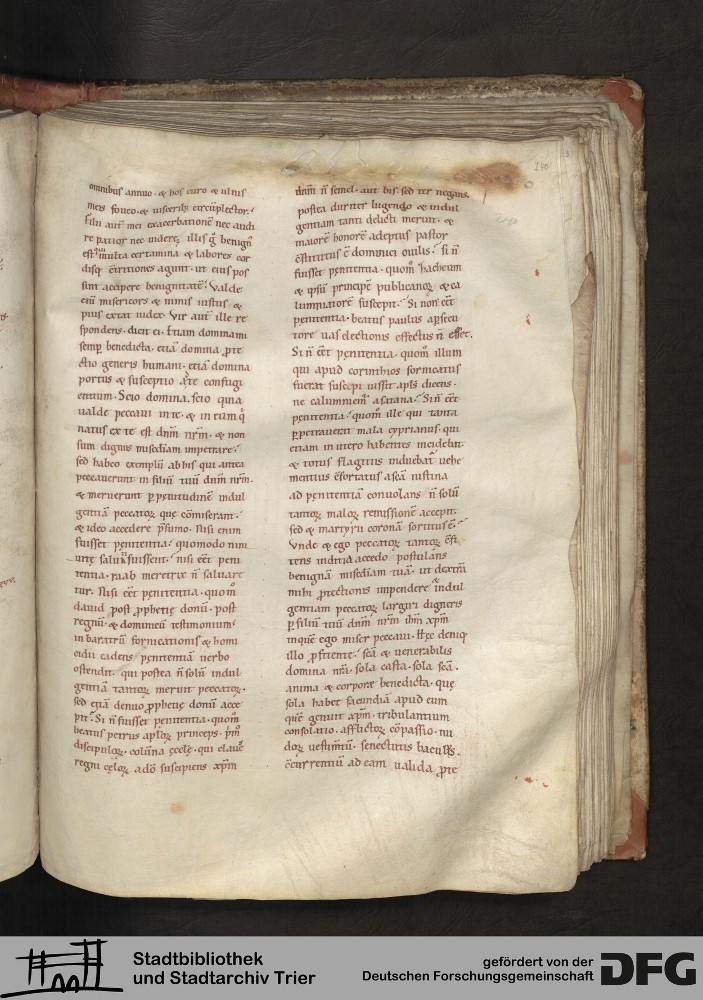 omnibus annuo · & hos curo & ulnis
meis foueo · & uisceribꝫ circūplector ·
Filii aut̄ mei exacerbationē nec audi
re patior nec uidere · illis q̄ benign̄
est · multa certamina & labores cor
disq̨ c̄tritiones agunt · ut eius pos
sint accipere benignitatē · Valde
eni misericors & nimis iustus &
pius extat iudex · Vir aut̄ ille re
spondens · dicit ei · Etiam domina mi
semp̄ benedicta · etiā domina ꝓte
ctio generis humani · etiā domina
portus & susceptio a te confugi
entium · Scio domina · scio quia
ualde peccaui in te · & in eum q̄
natus ex te est dn̄m nr̄m · & non
sum dignus misc̄diam impetrare ·
sed habeo exemplū ab his qui antea
peccauerunt in filiū tuū dn̄m nr̄m ·
& meruerunt ꝑ penitudinē indul
gentiā peccatoꝝ que cōmiserant ·
& ideo accedere p̄sumo · Nisi enim
fuisset penitentia · quomodo nini
uite saluati fuissent · nisi eēt peni
tentia · raab meretrix n̄ saluare
tur · Nisi eēt penitentia · quom̊
dauid post ꝓphetię donū · post
regnū · & dominicū testimonium
in baratrū fornicationis & homi
cidii cadens penitentiā uerbo
ostendit · qui postea n̄ solū indul
gentiā tantoꝝ meruit peccatoꝝ ·
sed etiā denuo ꝓphetię donū acce
pit · Si n̄ fuisset penitentia · quom̊
beatus petrus apl̄oꝝ princeps · p̄m̊
discipuloꝝ · colūna ęccłę · qui clauē
regni cęloꝝ a dō suscipiens xp̄m
dn̄m n̄ semel · aut bis · sed ter negans ·
postea duriter lugendo & indul
gentiam tanti delicti meruit · &
maiorē honorē adeptus pastor
c̄stitutus ē dominici ouilis · Si n̄
fuisset penitentia · quom̊ zacheum
& ipsū principē publicanoꝝ & ca
lumniatorē suscepit · Si non eēt
penitentia · beatus paulus a ꝑsecu
tore uas electionis effectus n̄ eēt ·
Si n̄ eēt penitentia · quom̊ illum
qui apud corinthios fornicatus
fuerat suscipi iussit apl̄s dicens ·
ne calumniem̄ a satana · Si n̄ eēt
penitentia · quom̊ ille qui tanta
ꝑpetrauerat mala cyprianus · qui
etiam in utero habentes incidebat
& totus flagitiis induebat̄ uehe
mentius c̄fortatus a sc̄a iustina
ad penitentiā conuolans n̄ solū
tantoꝝ maloꝝ remissionē accepit ·
sed & martyrii coronā sortitus ē ·
Vnde & ego peccator tantoꝝ c̄fi
tens inditia accedo postulans
benignā misc̄diam tuā · ut dexterā
mihi ꝓtectionis impendere & indul
gentiam peccatoꝝ largiri digneris
ꝑ filiū tuū dn̄m nr̄m ih̄m xp̄m
in quē ego miser peccaui · Hęc deniq̨
illo ꝓfitente · sc̄a & uenerabilis
domina nr̄a · sola casta · sola sc̄a ·
anima & corpore benedicta · que
sola habet facundiā apud eum
quē genuit xp̄m · tribulantium
consolatio · afflictoꝝ cōpassio · nu
doꝝ uestim̄tū · senectutis baculus ·
c̄currentiū ad eam ualida ꝓte
140
Stadtbibliothek
und Stadtarchiv Trier
gefördert von der
Deutschen Forschungsgemeinschaft
DFG